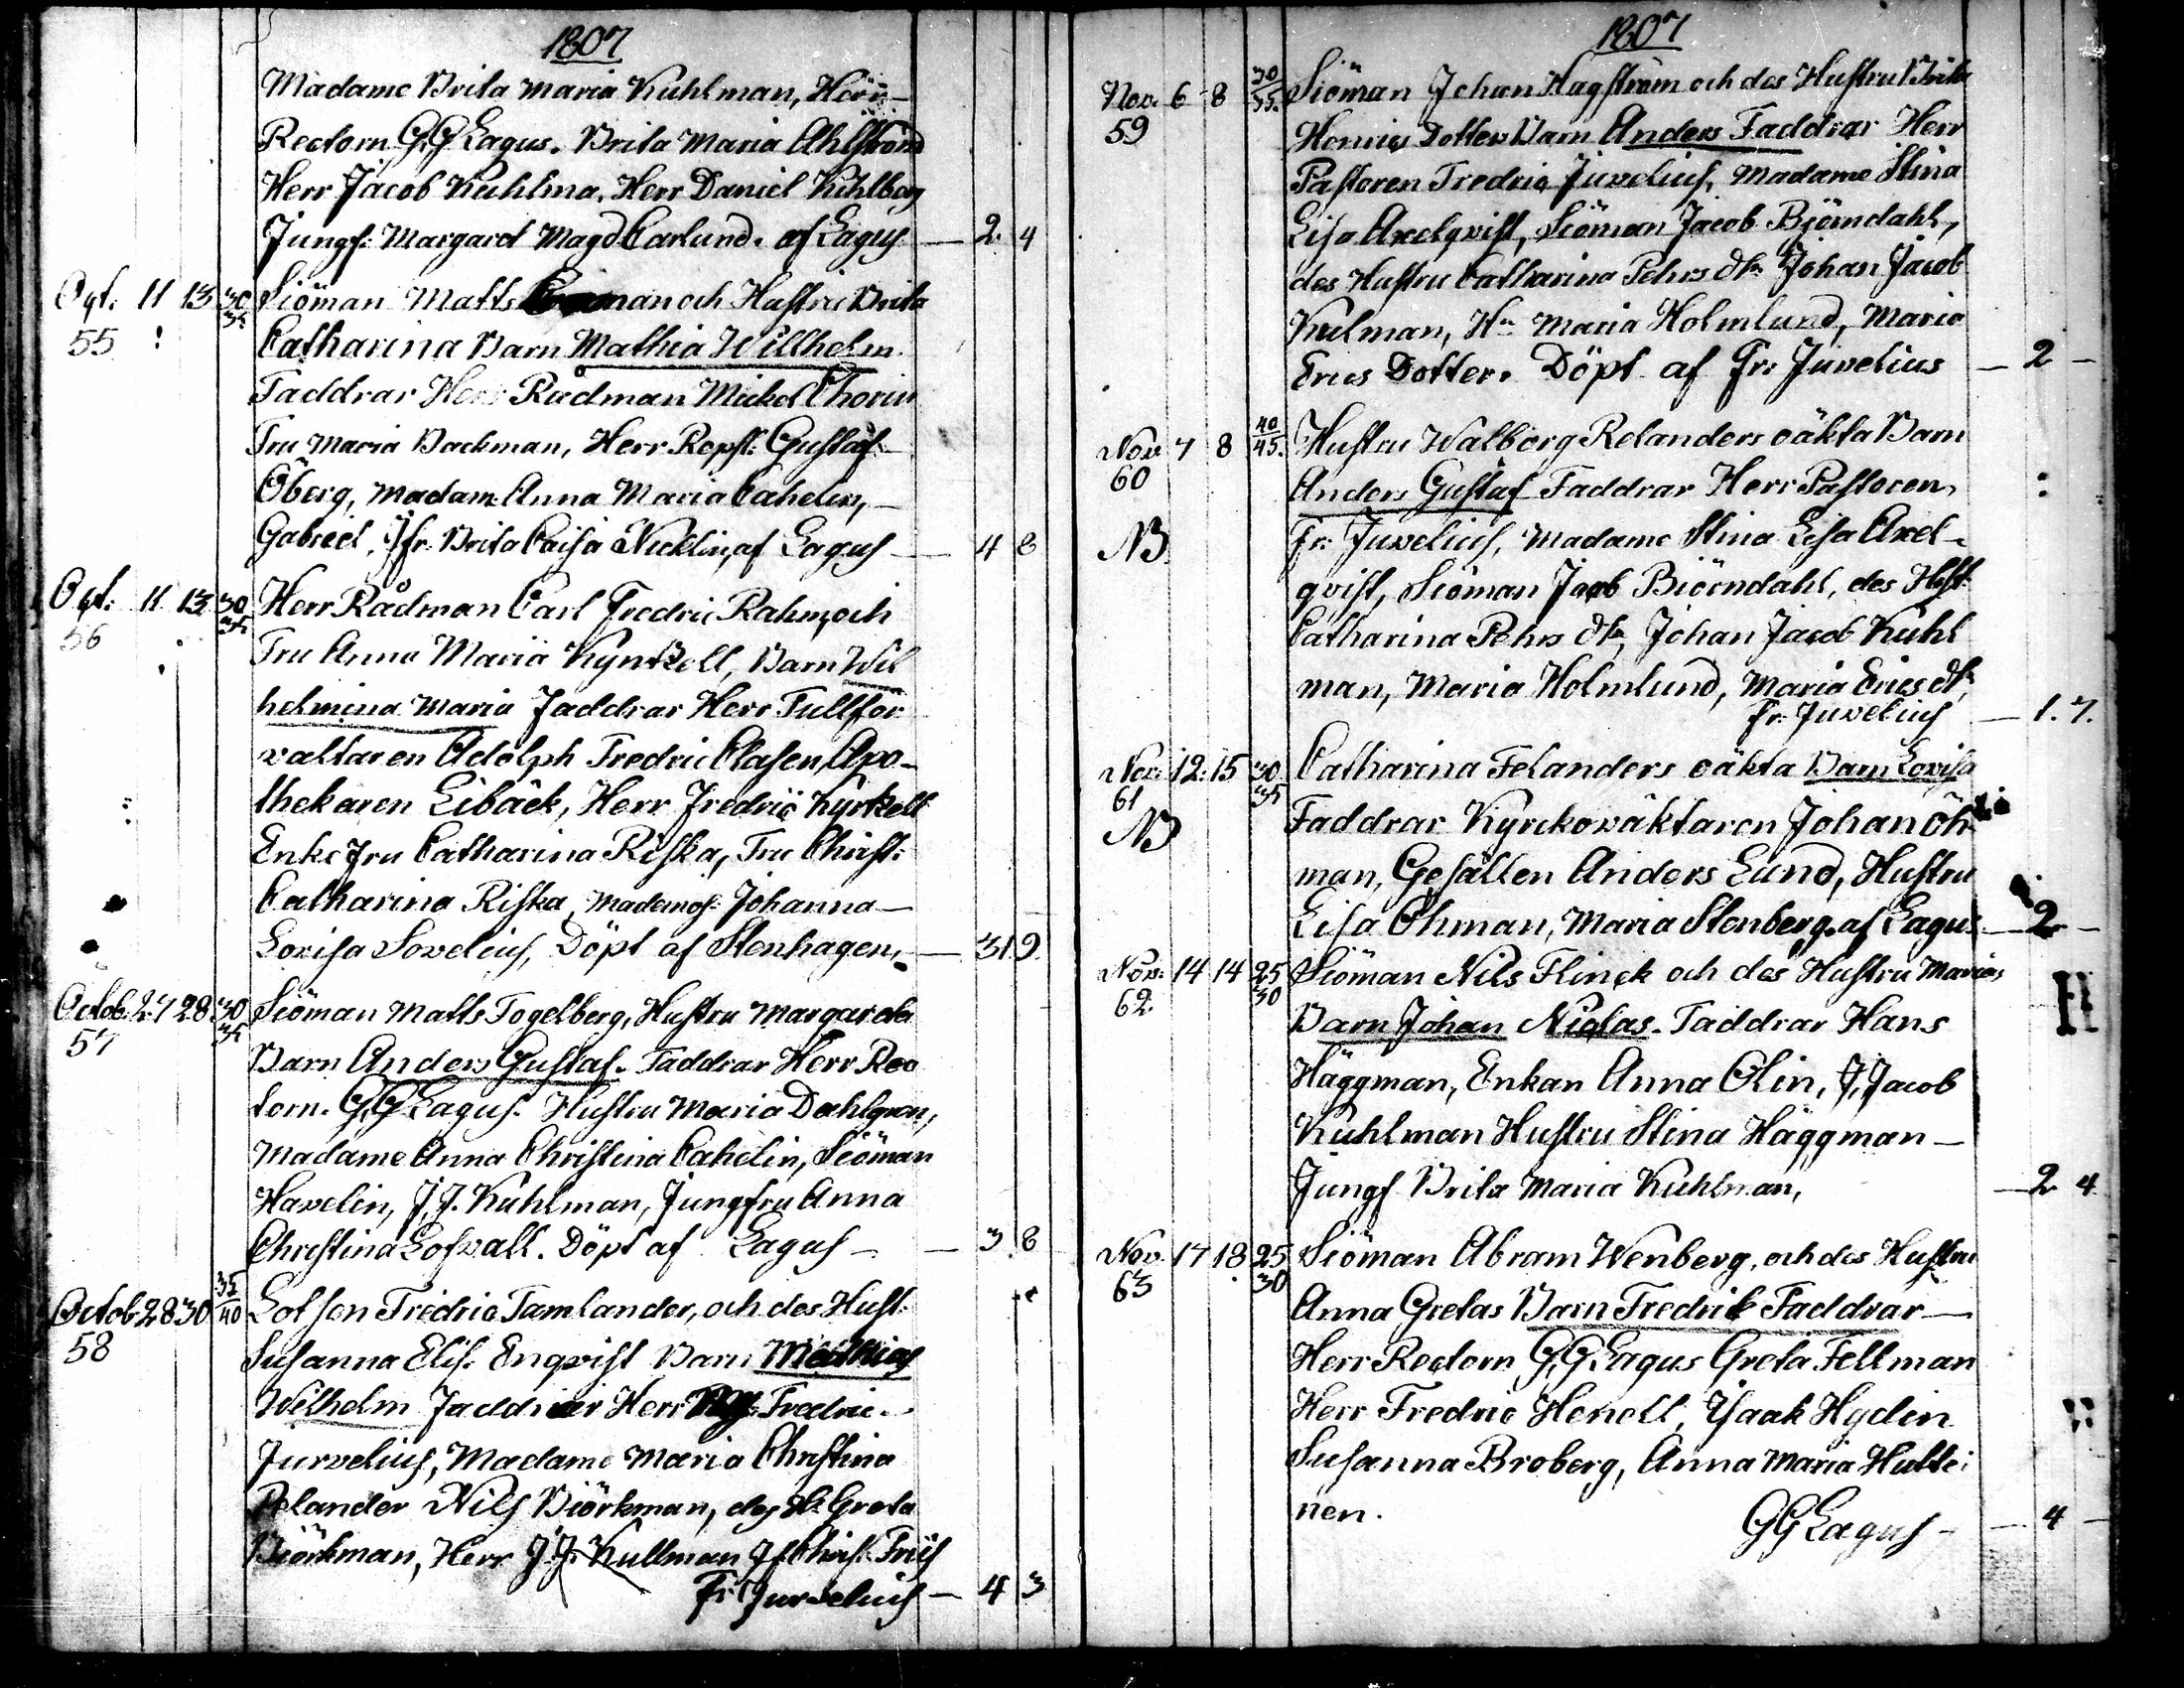 1807
Madame Brita Maria Kuhlman, Herr
Rectorn G.G. Lagus. Brita Maria Ahlström
Herr Jacob Kuhlma. Herr Daniel Kihlberg
Jungf: Margaret Magd Carlund. af Lagus — 2. 4
Oct. 11 13 30 Siöman Matts och Hustru Brita
35
55 Catharina Barn Mathia Willhelm.
Faddrar Herr Rådman Mickel Chorin
Fru Maria Backman, Herr Repsl: Gustaf
Öberg, Madam Anna Maria Cahelin,
Gabriel, Jfr. Brita Caisa Nicklin, af Lagus — 4 8
Oct: 11 13 30 Herr Rådman Carl Fredric Rahm, och
35
56 Fru Anna Maria Kyntzell, Barn Wil
helmina Maria Faddrar Herr Tullför
valtaren Adolph Fredric Clasen, Apo-
thekaren Eibäck, Herr Fredric Kyntzell
Enke Fru Catharina Riska, Fru Christ:
Catharina Riska, Mademos: Johanna —
Lovisa Sovelius, Döpt af Stenhagen, — 31. 9.
Octob: 27 28 30 Siöman Matts Fogelberg, Hustru Margareta
35
57 Barn Anders Gustaf. Faddrar Herr Rec
torn. G.G Lagus. Hustru Maria Dahlgren,
Madame Anna Christina Cahelin, Siöman
Havelin, J.J. Kuhlman, Jungfru Anna
Christina Lofvall. Döpt af Lagus — 3. 8
Octob 28 30 35 Lotsen Fredric Tamlander, och des Hust.
40
58 Susanna Elis. Enqvist Barn Mathias
Wilhelm Faddrar Herr Fredric
Juvelius, Madame Maria Christina
Relander Nils Biörkman, des H. Greta
Biörkman, Herr J.J. Kullman Jf. Christ. Friis
Fr: Juvelius — 4 3
1807
Nov. 6 8 30 Siöman Johan Hagström och des Hustru Brita
35.
59 Henrics Dotters Barn Anders Faddrar Herr
Pastoren Fredric Juvelius, Madame Stina
Lisa Axelqvist, Siöman Jacob Björndahl,
des Hustru Catharina Pehrs dtr. Johan Jacob
Kulman, Hu Maria Holmlund, Maria
Erics Dotter. Döpt af Fr: Juvelius — 2 —
Nov. 7 8 40 Hustru Walborg Relanders oäkta Barn
45.
60 Anders Gustaf Faddrar Herr Pastoren
NB Fr: Juvelius, Madame Stina Lisa Axel-
qvist, Siöman Jacob Biörndahl, des Hust:
Catharina Pehrs dtr, Johan Jacob Kuhl
man, Maria Holmlund, Maria Erics dtr,
Fr: Juvelius — 1. 7.
Nov: 12. 15 30 Catharina Felanders oäkta Barn Lovisa
35
61 NB Faddrar Kyrckoväktaren Johan Öh
man, Gesällen Anders Lund, Hustru
Lisa Öhman, Maria Stenberg. af Lagus — 2 —
Nov: 14 14 25 Siöman Nils Flinck och des Hustru Marias
30
62. Barn Johan Niclas. Faddrar Hans
Häggman, Enkan Anna Olin, J. Jacob
Kuhlman Hustru Stina Häggman —
Jungf Brita Maria Kuhlman, — 2 4
Nov. 17 18 25 Siöman Abram Wenberg, och des Hustru
30
63 Anna Gretas Barn Fredrik Faddrar —
Herr Rectorn G.G Lagus Greta Fellman
Herr Fredric Henell, Isaak Hydin
Susanna Broberg, Anna Maria Hutti
nen.
GG Lagus — 4 —